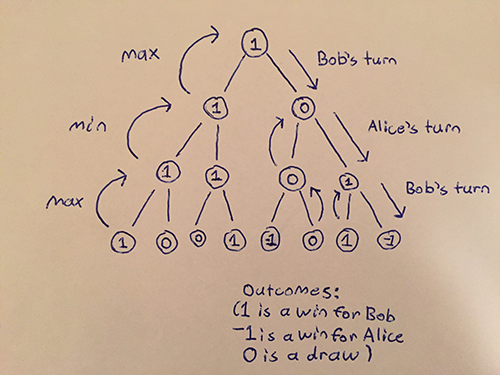 1
max
Bob's turn
1 0
min
Alice's turn
1 1 0 1
max
Bob's turn
1 0 0 1 -1 0 1 -1
Outcomes:
(1 is a win for Bob
-1 is a win for Alice
0 is a draw)